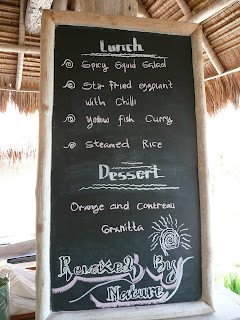 Lunch
Spicy Squid Salad
Stir fried eggplant
with Chilli
Yellow fish Curry
Steamed Rice
Dessert
Orange and Contreau
Granitta
Relaxed By
Nature